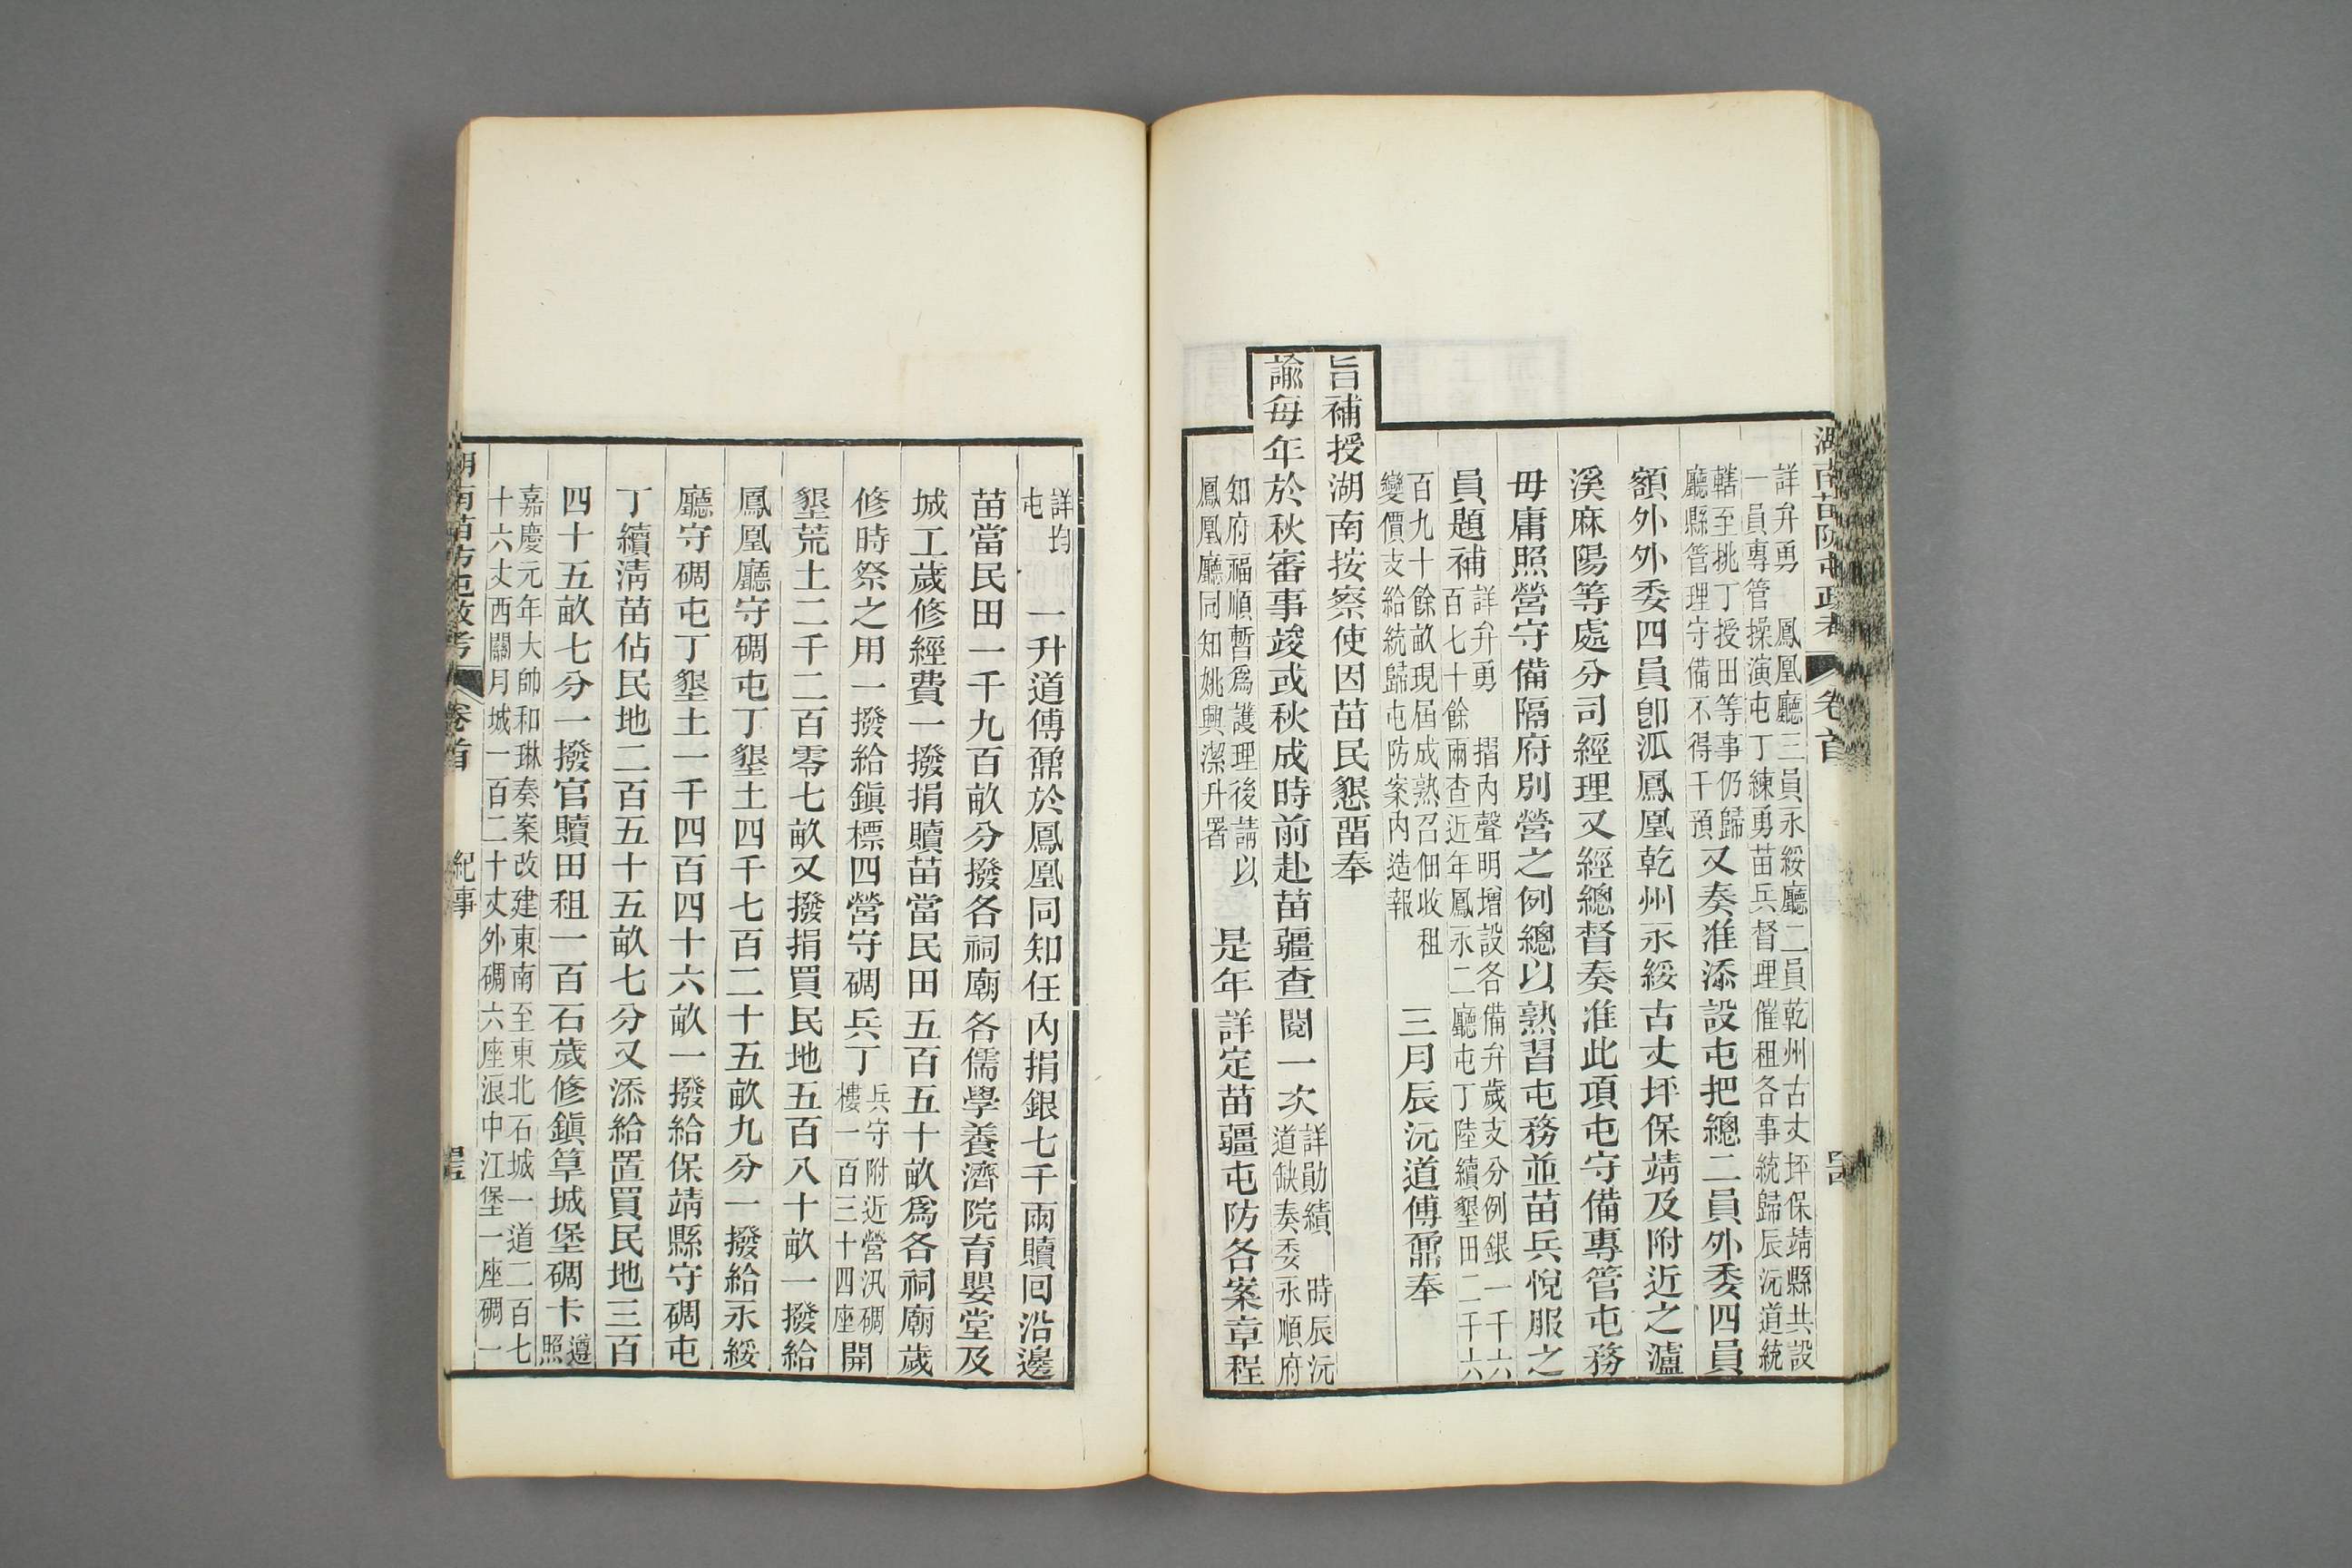 湖南苗防屯政考 卷首
詳弁勇 鳳凰廳三員永綏廳二員乾州古丈坪保靖縣共設
一員專管操演屯丁練勇苗兵督理催租各事統歸辰沅道統
轄至挑丁授田等事仍歸
廳縣管理守備不得干預
又奏准添設屯把總二員外委四員
額外外委四員卽泒鳳凰乾州永綏古丈坪保靖及附近之瀘
溪麻陽等處分司經理又經總督奏准此項屯守備專管屯務
毋庸照營守備隔府別營之例總以熟習屯務並苗兵悅服之
員題補
詳弁勇 摺內聲明增設各備弁歲支分例銀一千六
百七十餘兩查近年鳳永二廳屯丁陸續墾田二千六
百九十餘畝現屆成熟召佃收租
變價支給統歸屯防案內造報
三月辰沅道傅鼐奉
旨補授湖南按察使因苗民懇畱奉
諭每年於秋審事竣或秋成時前赴苗疆查閱一次
詳勛績 時辰沅
道缺奏委永順府
知府福順暫爲護理後請以
鳳凰廳同知姚興潔升署
是年詳定苗疆屯防各案章程
詳均
屯
一升道傅鼐於鳳凰同知任內捐銀七千兩贖回沿邊
苗當民田一千九百畝分撥各祠廟各儒學養濟院育嬰堂及
城工歲修經費一撥捐贖苗當民田五百五十畝爲各祠廟歲
修時祭之用一撥給鎭標四營守碉兵丁
兵守附近營汛碉
樓一百三十四座
開
墾荒土二千二百零七畝又撥捐買民地五百八十畝一撥給
鳳凰廳守碉屯丁墾土四千七百二十五畝九分一撥給永綏
廳守碉屯丁墾土一千四百四十六畝一撥給保靖縣守碉屯
丁續淸苗佔民地二百五十五畝七分又添給置買民地三百
四十五畝七分一撥官贖田租一百石歲修鎭筸城堡碉卡
遵
照
嘉慶元年大帥和琳奏案改建東南至東北石城一道二百七
十六丈西關月城一百二十丈外碉六座浪中江堡一座碉一
湖南苗防屯政考 卷首 紀事